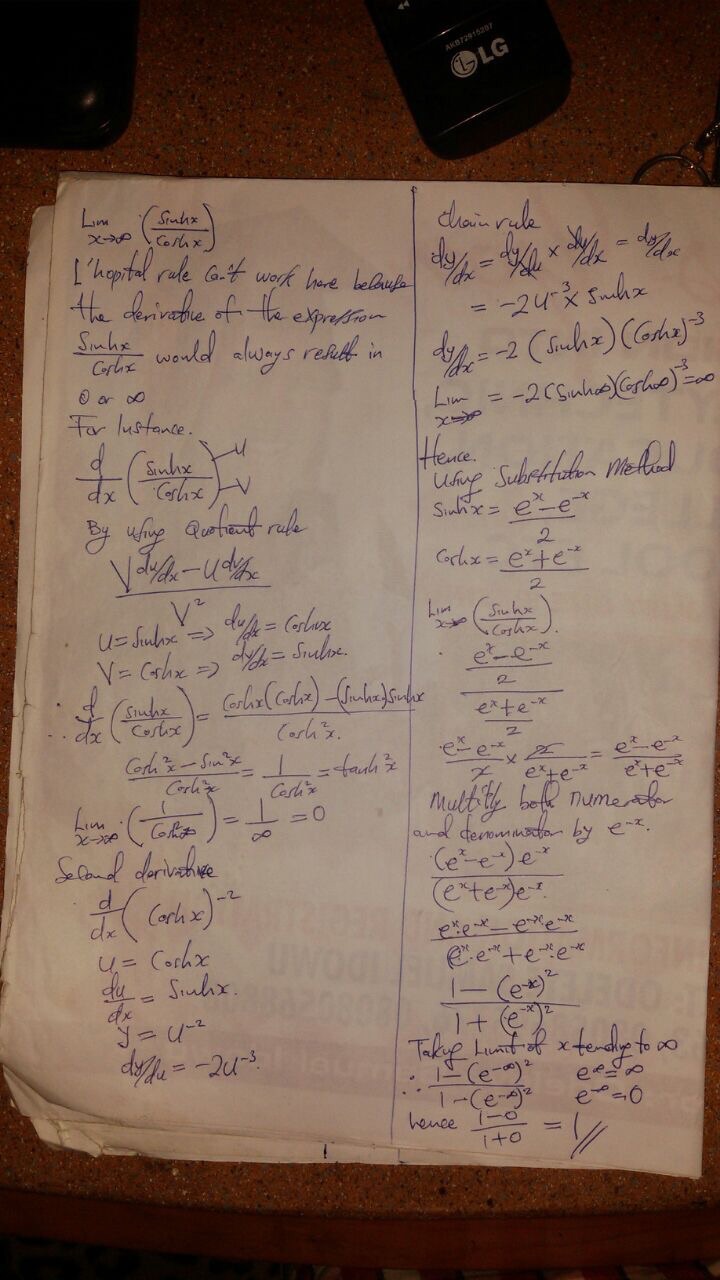 AKB72915207
LG
Lim x→∞ (Sinhx/Coshx)
L'hopital rule can't work here because
the derivative of the expression
Sinhx/Coshx would always result in
0 or ∞
For Instance.
d/dx (Sinhx/Coshx) U V
By using Quotient rule
(V du/dx − U dv/dx)/V²
U = Sinhx => du/dx = Coshx
V = Coshx => dv/dx = Sinhx.
∴ d/dx (Sinhx/Coshx) = (Coshx(Coshx) − (Sinhx)Sinhx)/Cosh²x.
(Cosh²x − Sin²x)/Cosh²x = 1/Cosh²x = tanh²x
Lim x→∞ (1/Cosh²x) = 1/∞ = 0
Second derivative
d/dx (Coshx)⁻²
U = Coshx
du/dx = Sinhx.
y = U⁻²
dy/du = −2U⁻³.
Chain rule
dy/dx = dy/du × du/dx = dy/dx
= −2U⁻³ × Sinhx
dy/dx = −2 (Sinhx) (Coshx)⁻³
Lim x→∞ = −2(Sinh∞)(Cosh∞)⁻³ = ∞
Hence.
Using Substitution Method
Sinhx = (eˣ − e⁻ˣ)/2
Coshx = (eˣ + e⁻ˣ)/2
Lim x→∞ (Sinhx/Coshx).
((eˣ − e⁻ˣ)/2)/((eˣ + e⁻ˣ)/2)
(eˣ − e⁻ˣ)/2 × 2/(eˣ + e⁻ˣ) = (eˣ − e⁻ˣ)/(eˣ + e⁻ˣ)
Multiply both numerator
and denominator by e⁻ˣ.
(eˣ − e⁻ˣ)e⁻ˣ/(eˣ + e⁻ˣ)e⁻ˣ
(eˣ·e⁻ˣ − e⁻ˣ·e⁻ˣ)/(eˣ·e⁻ˣ + e⁻ˣ·e⁻ˣ)
(1 − (e⁻ˣ)²)/(1 + (e⁻ˣ)²)
Taking Limit of x tending to ∞
∴ (1 − (e⁻∞)²)/(1 − (e⁻∞)²) e^∞ = ∞ e⁻∞ = 0
hence (1 − 0)/(1 + 0) = 1//